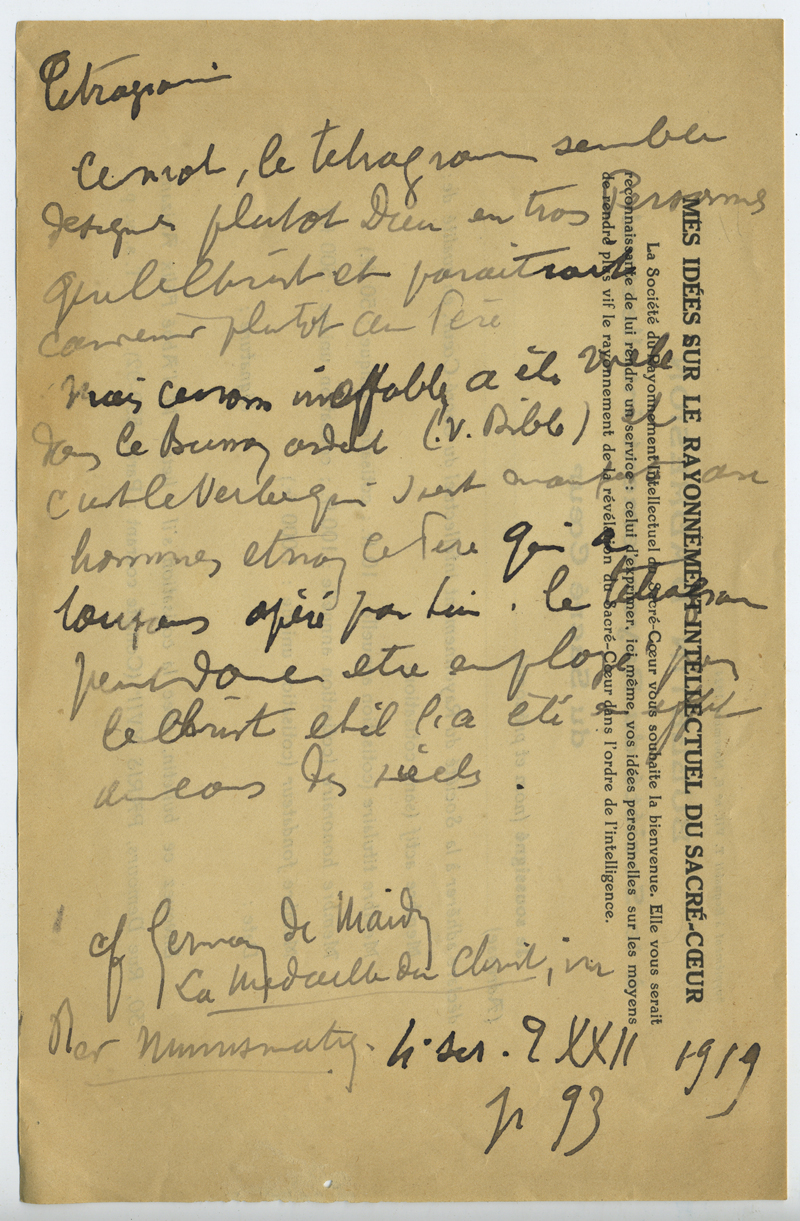 Tetragram
Ce mot, le tetragram semble
designer plutot Dieu en trois Personnes
que le Christ et paraitrait
convenir plutot au Père
Mais ce nom ineffable a été
dans le Buisson ardent (.V. Bible)
c'est le Verbe qui s'est aux
hommes et non le Père qui a
toujours opéré par lui. le tetragram
peut donc etre employé pour
le Christ et il l'a été
au cours des siècles.
cf Germain de Maidy
La Medaille du Christ, in
Rev Numismatiq. 4e ser. T XXII 1919
p 93
MES IDÉES SUR LE RAYONNEMENT INTELLECTUEL DU SACRÉ-CŒUR
La Société du Rayonnement Intellectuel du Sacré-Cœur vous souhaite la bienvenue. Elle vous serait
reconnaissante de lui rendre un service : celui d'exprimer, ici même, vos idées personnelles sur les moyens
de rendre plus vif le rayonnement de la révélation du Sacré-Cœur dans l'ordre de l'intelligence.